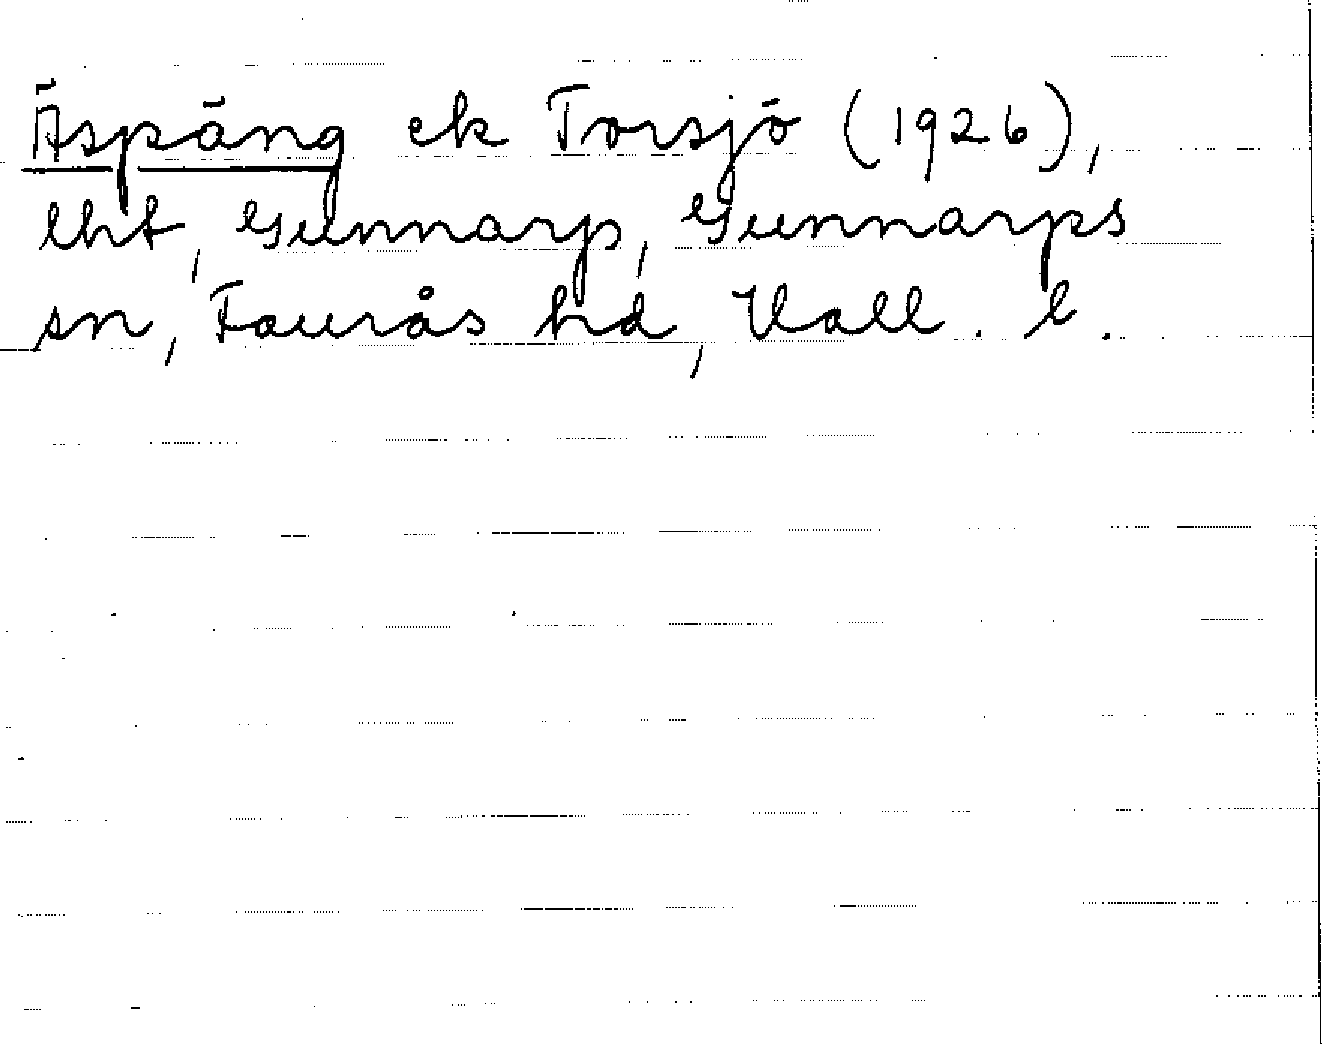 Äspäng ek Torsjö (1926),
lht, Gunnarp, Gunnarps
sn, Faurås hd, Hall. l.